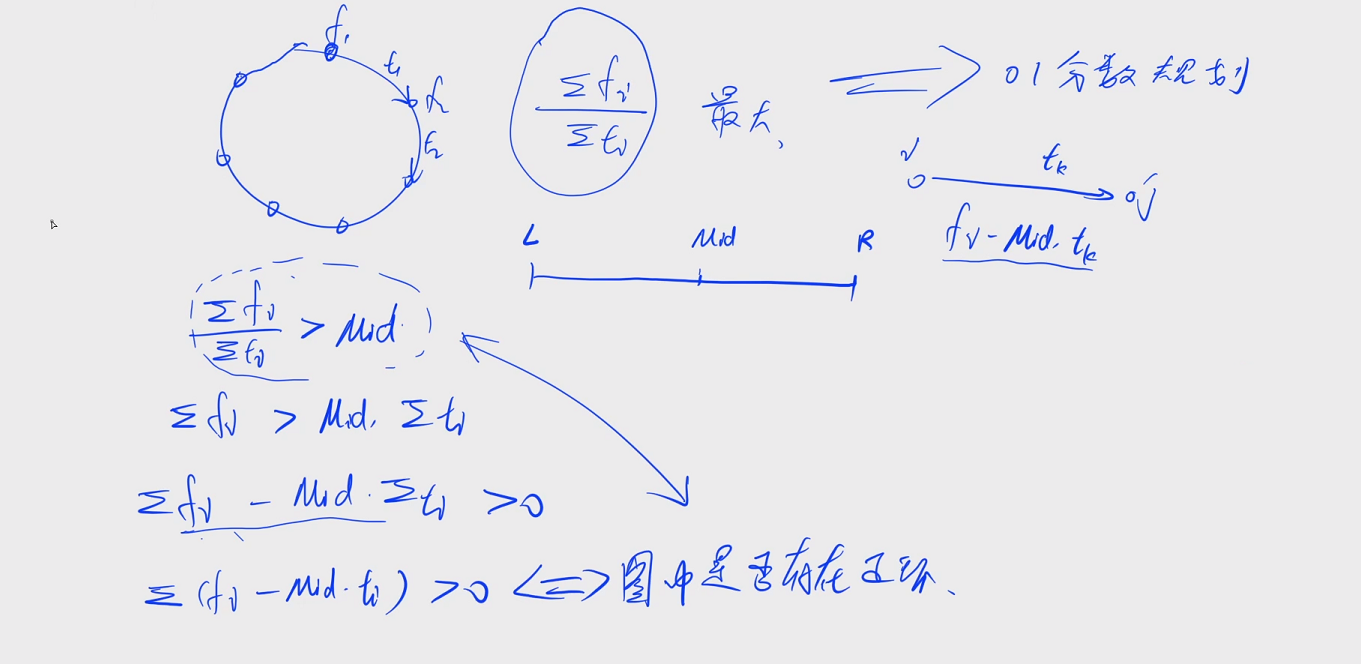 f₁
t₁
f₂
t₂
Σfᵢ / Σtᵢ 最大、
01分数规划
i tₖ j
fᵢ - Mid · tₖ
L Mid R
Σfᵢ / Σtᵢ > Mid
Σfᵢ > Mid · Σtᵢ
Σfᵢ - Mid · Σtᵢ > 0
Σ(fᵢ - Mid · tᵢ) > 0 <=> 图中是否存在正环、